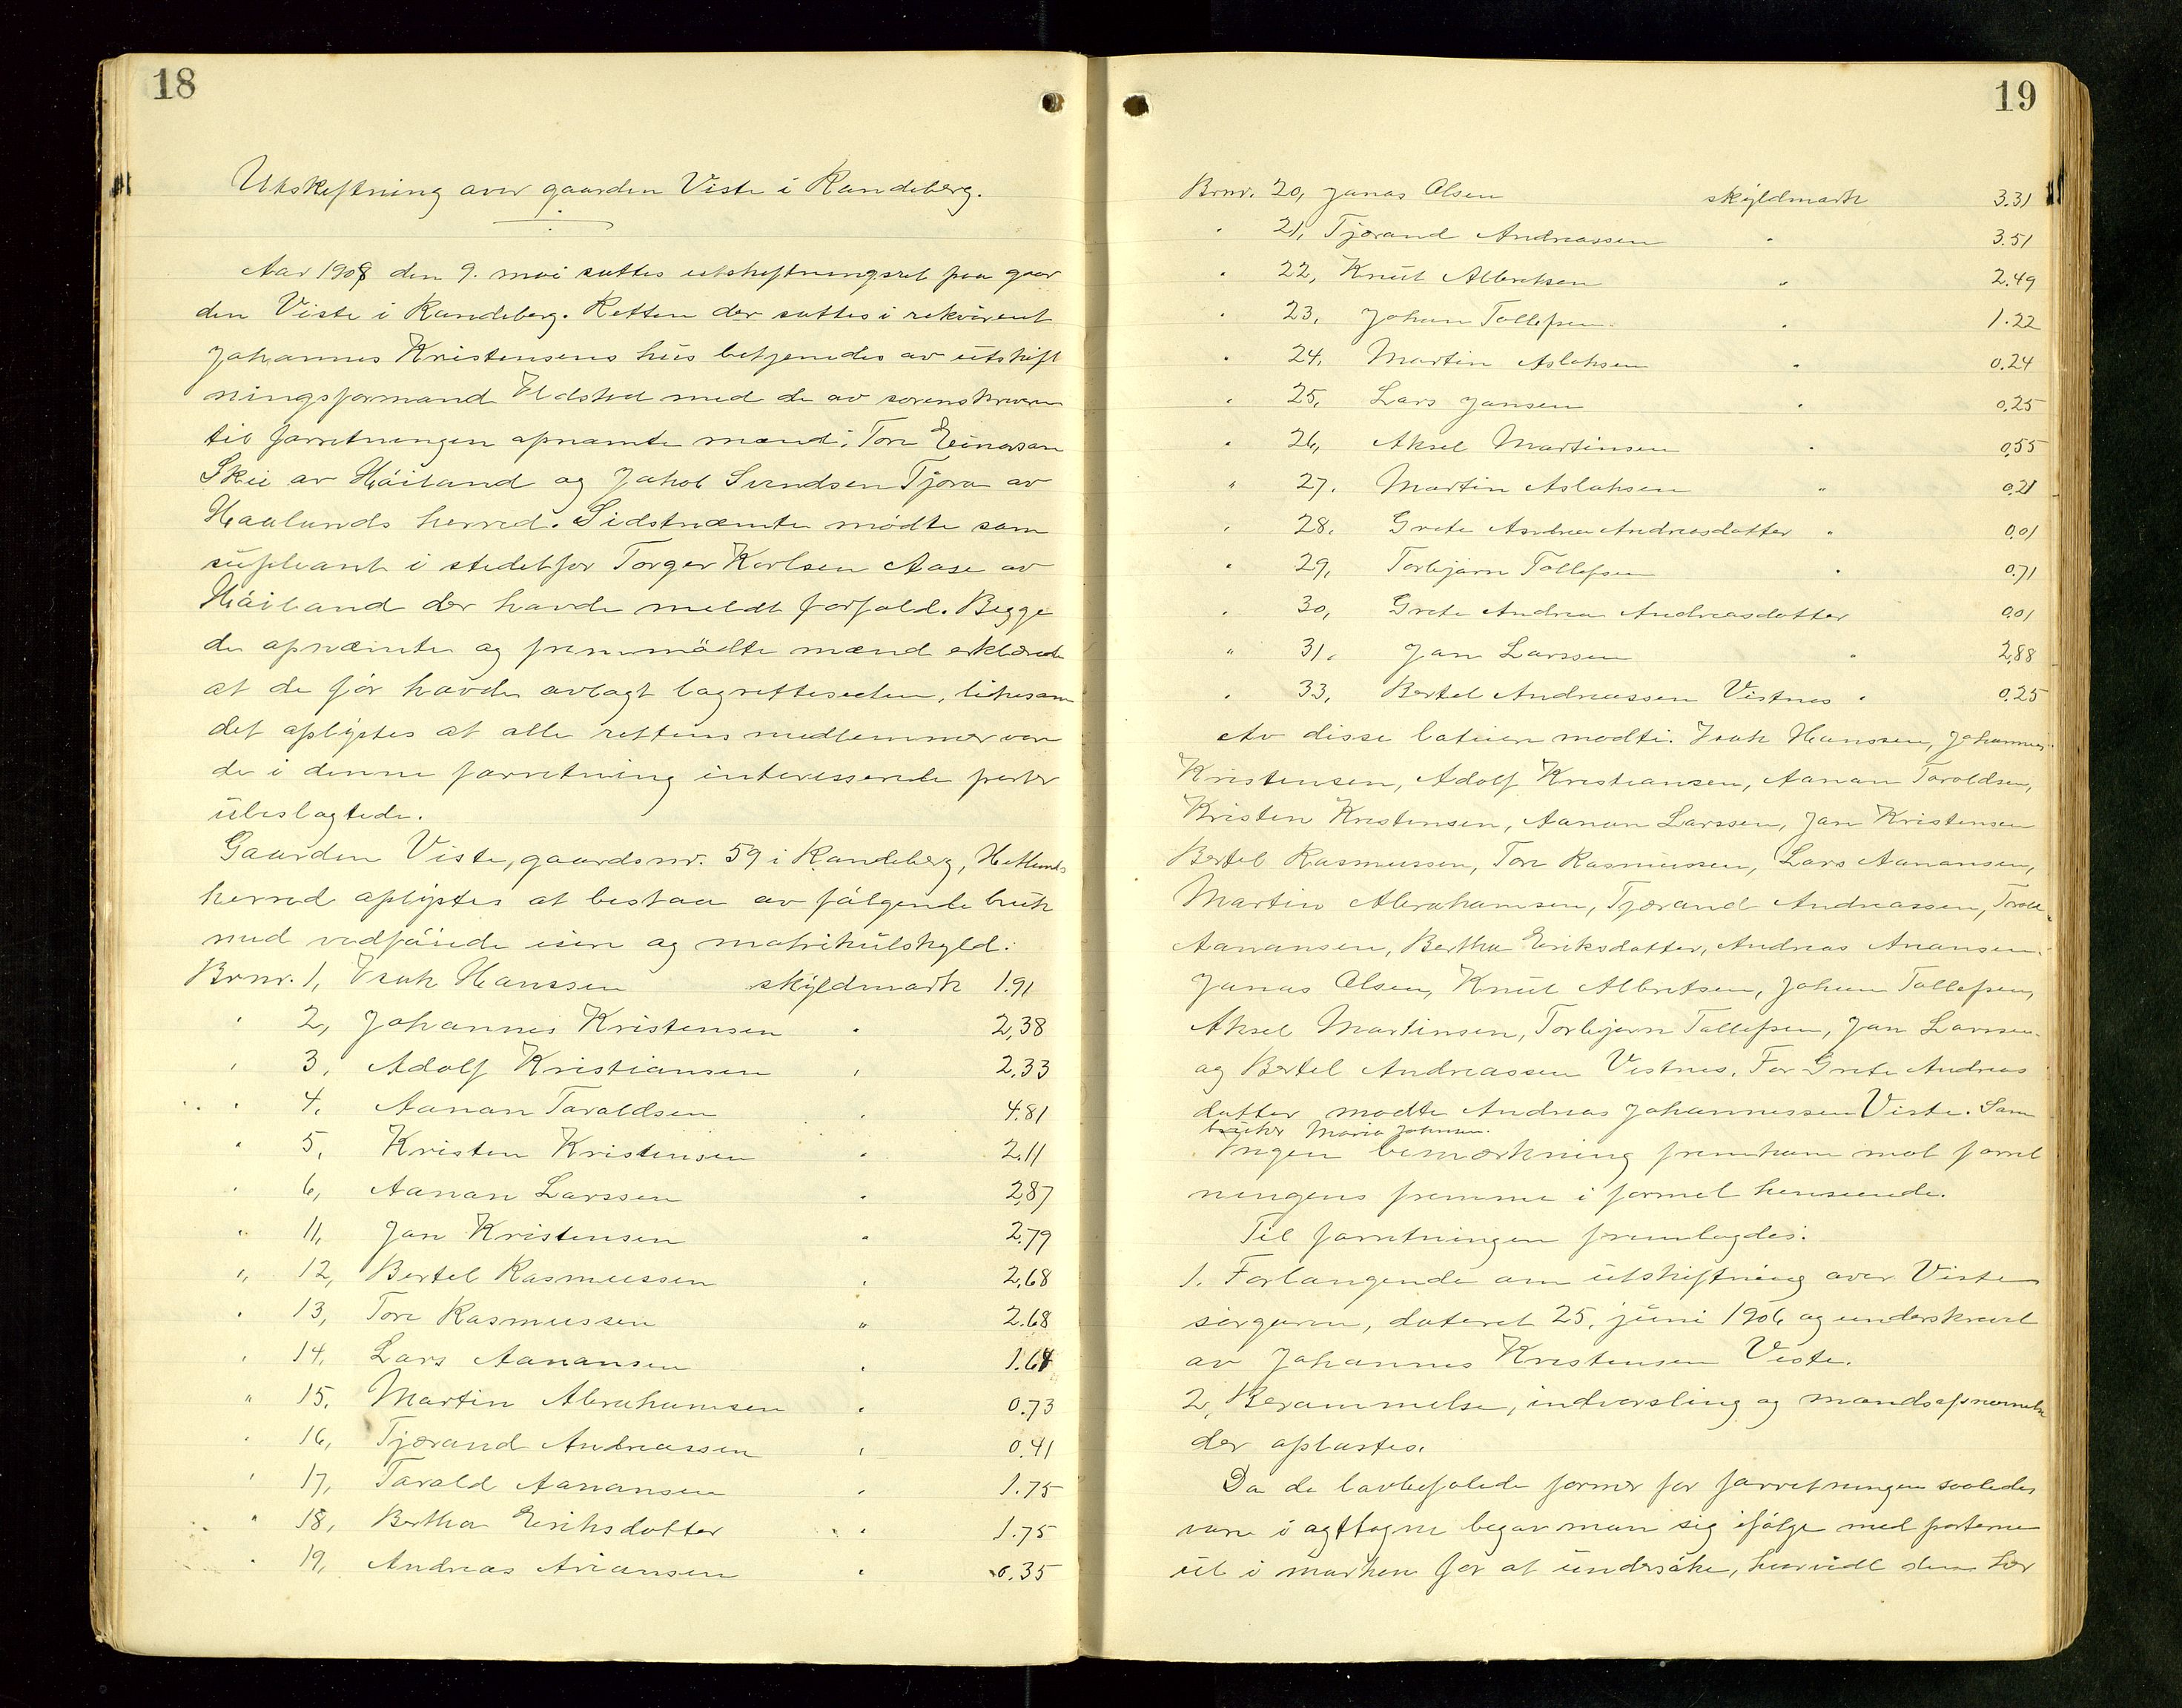 18
Utskiftning over gaarden Viste i Randeberg.
Aar 1908 den 9. mai sattes utskiftningsret paa gaar
den Viste i Randeberg. Retten der sattes i rekvirent
Johannes Kristensens hus betjenedes av utskift
ningsformand Eldsted med de av sorenskriveren
til forretningen opnævnte mænd: Tore Einarsen
Skei av Høiland og Jakob Svendsen Tjora av
Haalands herred. Sidstnævnte mødte som
supleant i stedetfor Torger Karlsen Aase av
Høiland der havde meldt forfald. Begge
de opnævnte og fremmødte mænd erklærede
at de før havde avlagt lagretteseden, likesom
det oplystes at alle rettens medlemmer var
de i denne forretning interesserede parter
ubeslagtede.
Gaarden Viste, gaardsnr. 59 i Randeberg, Hetlands
herred oplystes at bestaa av følgende bruk
med vedføiede eiere og matrikulskyld:
Brnr. 1, Isak Hanssen skyldmark 1.91
" 2, Johannes Kristensen " 2,38
" 3, Adolf Kristiansen " 2.33
" 4. Aanan Taraldsen " 4.81
" 5, Kristen Kristensen " 2.11
" 6, Aanan Larssen " 2,87
" 11, Jan Kristensen " 2.79
" 12, Bertel Rasmussen " 2,68
" 13, Tore Rasmussen " 2.68
" 14, Lars Aanansen " 1.64
" 15. Martin Abrahamsen " 0.73
" 16, Tjærand Andreassen " 0.41
" 17, Tarald Aanansen " 1.75
" 18, Bertha Eriksdotter " 1.75
" 19, Andreas Anansen " 0.35
19
Brnr. 20, Jonas Olsen skyldmark 3.31
" 21, Tjærand Andreassen " 3.51
" 22, Knut Albretsen " 2.49
" 23, Johan Tollefsen " 1.22
" 24. Martin Aslaksen " 0.24
" 25, Lars Jansen " 0.25
" 26, Aksel Martinsen " 0,55
" 27. Martin Aslaksen " 0.21
" 28. Grete Andrea Andreasdotter " 0,01
" 29, Torbjørn Tollefsen " 0.71
" 30, Grete Andrea Andreasdotter 0.01
" 31. Jan Larssen " 2,88
" 33, Bertel Andreassen Vistnes " 0.25
Av disse loteiere mødte: Isak Hanssen, Johannes
Kristensen, Adolf Kristiansen, Aanan Taraldsen,
Kristen Kristensen, Aanan Larssen, Jan Kristensen
Bertel Rasmussen, Tore Rasmussen, Lars Aanansen,
Martin Abrahamsen, Tjærand Andreassen, Tarald
Aanansen, Bertha Eriksdotter, Andreas Anansen.
Jonas Olsen, Knut Albretsen, Johan Tollefsen,
Aksel Martinsen, Torbjørn Tollefsen, Jan Larssen
og Bertel Andreassen Vistnes. For Grete Andreas
dotter mødte Andreas Johannessen Viste. Sam
bruker Maria Johnsen.
Ingen bemerkning fremkom mot forret
ningens fremme i formel henseende.
Til forretningen fremlagdes:
1. Forlangende om utskiftning over Viste
, dateret 25. juni 1906 og underskrevet
av Johannes Kristensen Viste.
2, Berammelse, indvarsling og mandsopnævnelse
der oplæstes.
Da de lovbefalede former for forretningen saaledes
vare iagttagne begav man sig ifølge med parterne
ut i marken for at undersøke, hvorvidt den har